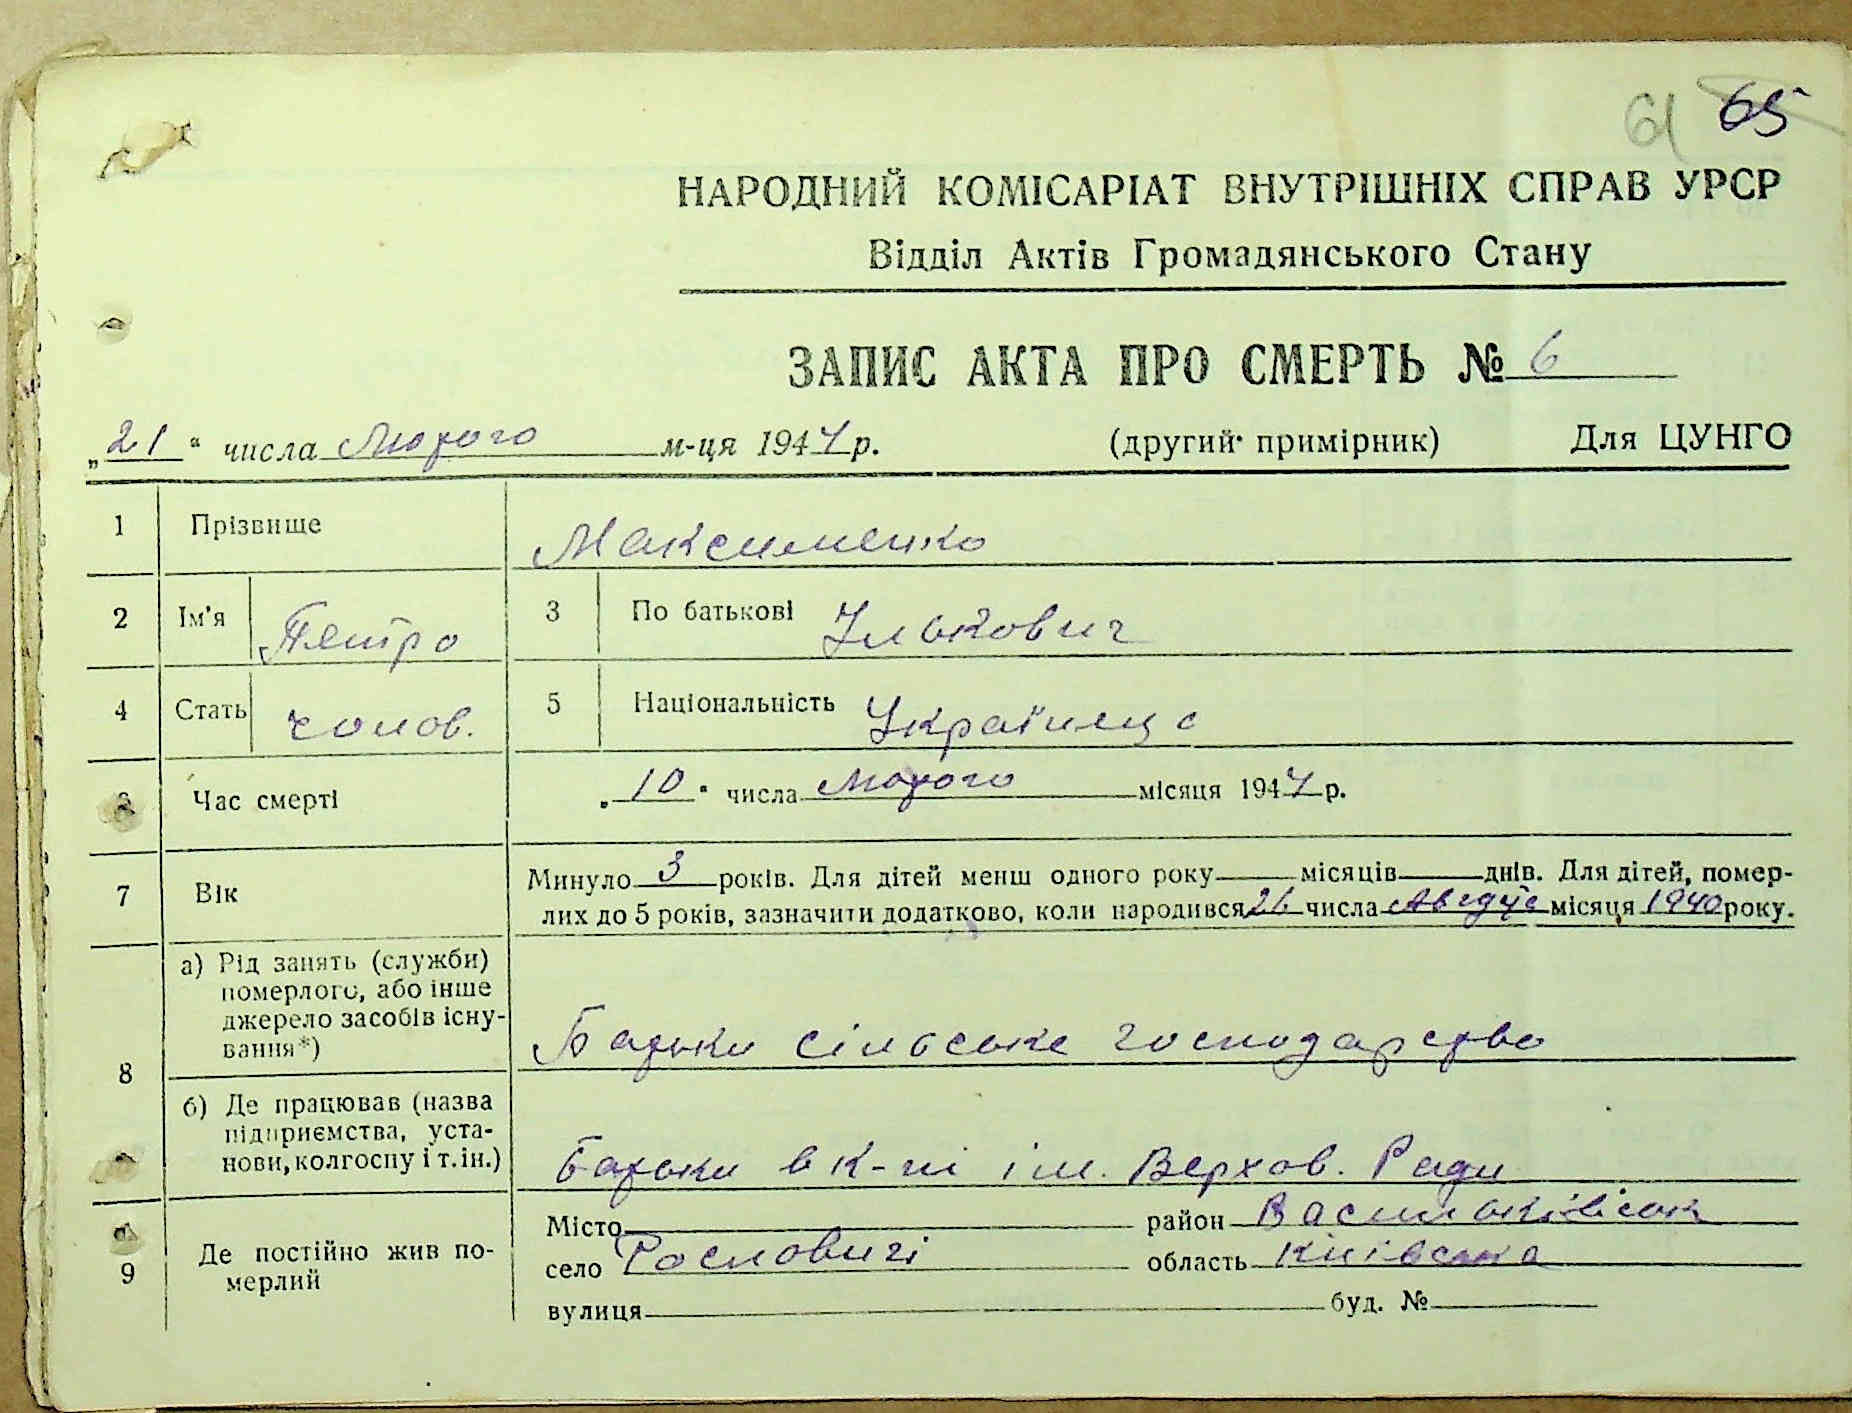 61 65
НАРОДНИЙ КОМІСАРІАТ ВНУТРІШНІХ СПРАВ УРСР
Відділ Актів Громадянського Стану
ЗАПИС АКТА ПРО СМЕРТЬ № 6
„21“ числа Лютого м-ця 1944 р. (другий примірник) Для ЦУНГО
1 Прізвище Максименко
2 Ім'я Петро 3 По батькові Ількович
4 Стать чолов. 5 Національність Українець
6 Час смерті „10“ числа Лютого місяця 1944 р.
7 Вік Минуло 3 років. Для дітей менш одного року місяців днів. Для дітей, помер-
лих до 5 років, зазначити додатково, коли народився 26 числа місяця 1940 року.
8 а) Рід занять (служби)
померлого, або інше
джерело засобів існу-
вання*) Батьки сільське господарство
б) Де працював (назва
підприємства, уста-
нови, колгоспу і т. ін.) Батьки в к-пі ім. Верхов. Ради
9 Де постійно жив по-
мерлий
Місто район Васильківськ
село Рословичі область Київська
вулиця буд. №